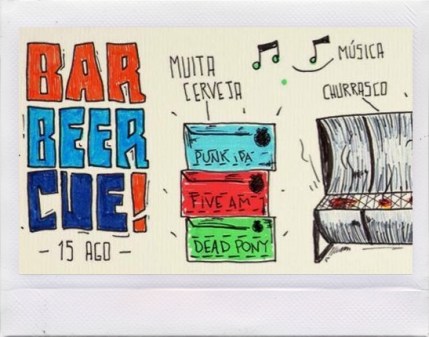 BAR
BEER
CUE!
- 15 AGO -
MUITA
CERVEJA
PUNK IPA
FIVE AM
DEAD PONY
MÚSICA
CHURRASCO